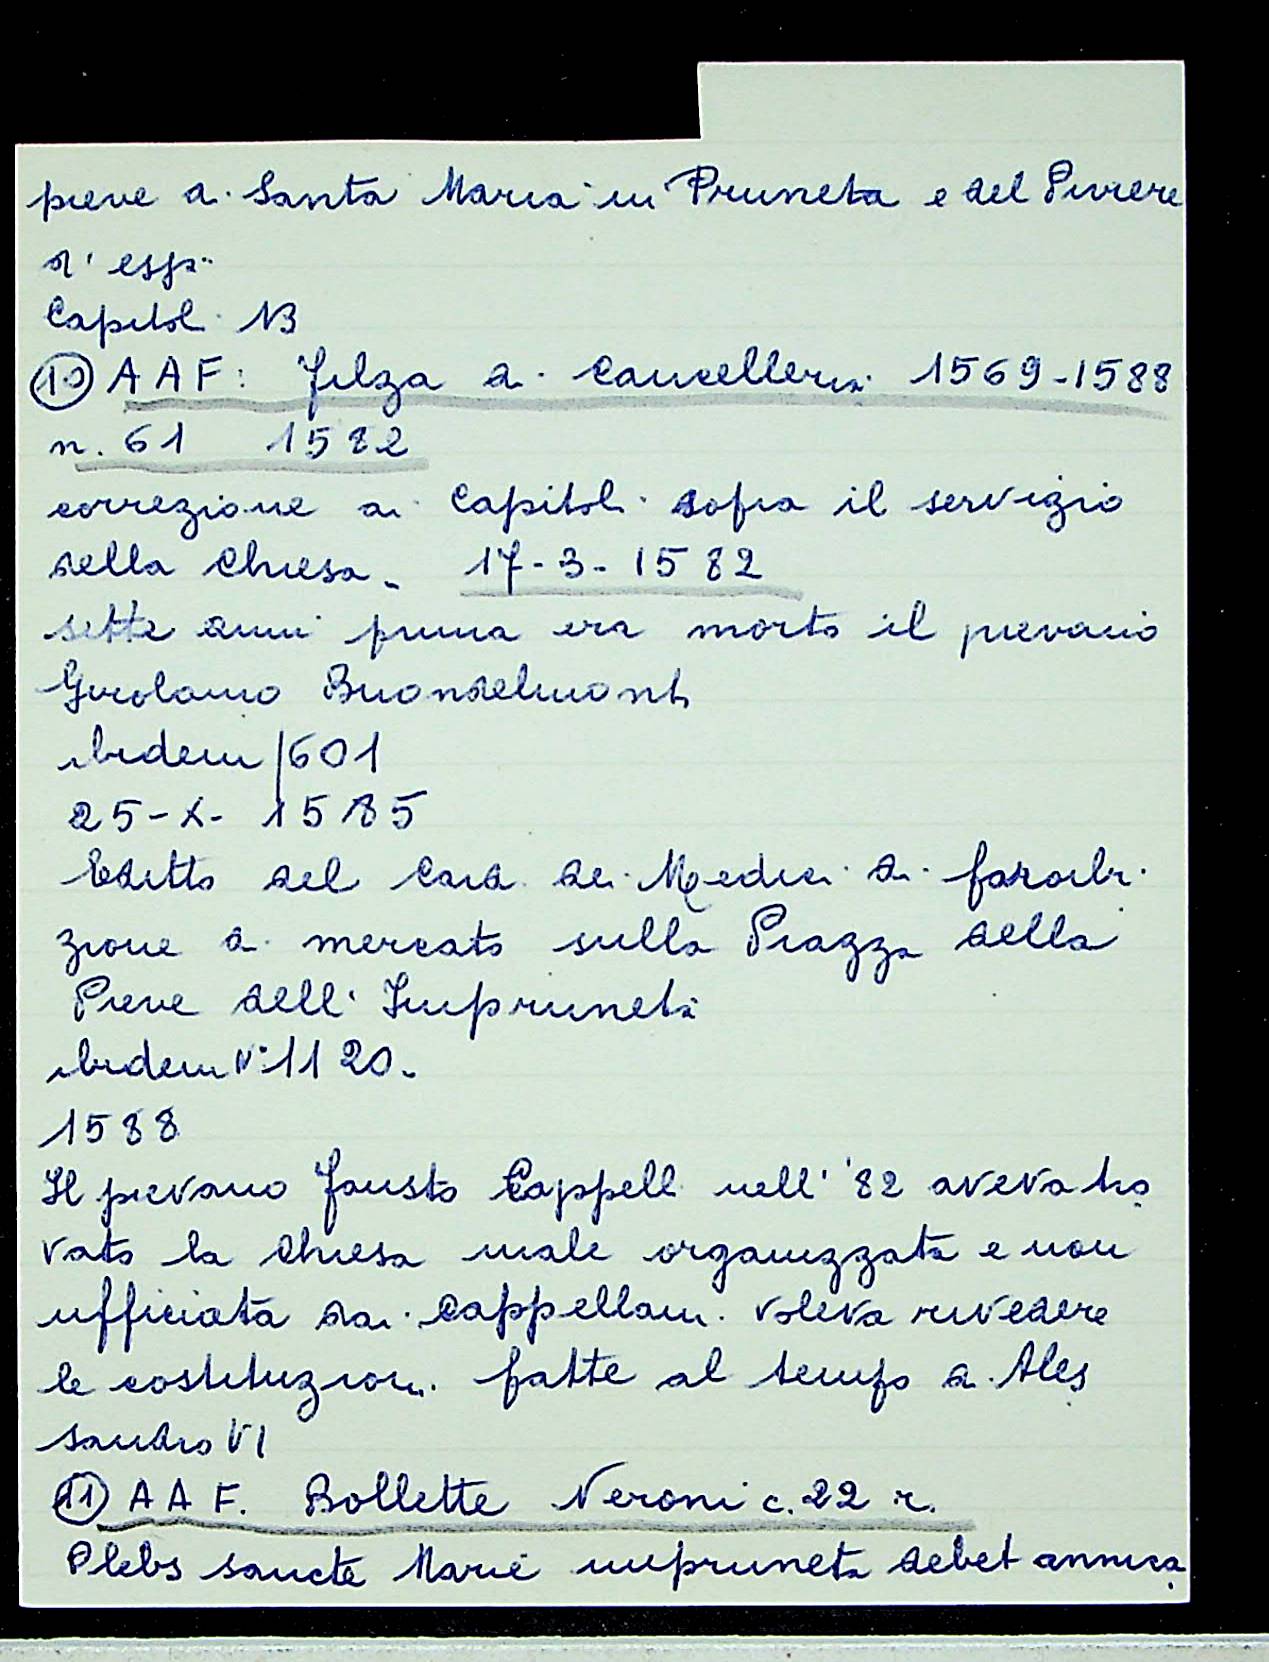 pieve di Santa Maria in Pruneta e del Piviere
d' essa
Capitol. 13
10 AAF: filza di Cancelleria 1569-1588
n. 61 1582
correzione ai Capitoli sopra il servizio
della Chiesa. 17-3-1582
sette anni prima era morto il pievano
Girolamo Buondelmonti
ibidem /601
25-X- 1585
Editto del Card. dei Medici di proibi-
zione di mercato sulla Piazza della
Pieve dell' Impruneta
ibidem N° 1120.
1588
Il pievano Fausto Cappelli nell' '82 aveva tro
vato la Chiesa male organizzata e non
ufficiata dai Cappellani. voleva rivedere
le costituzioni fatte al tempo di Ales
sandro VI
11 AAF. Bollette Neroni c. 22 r.
Plebs sancte Marie impruneta debet annua